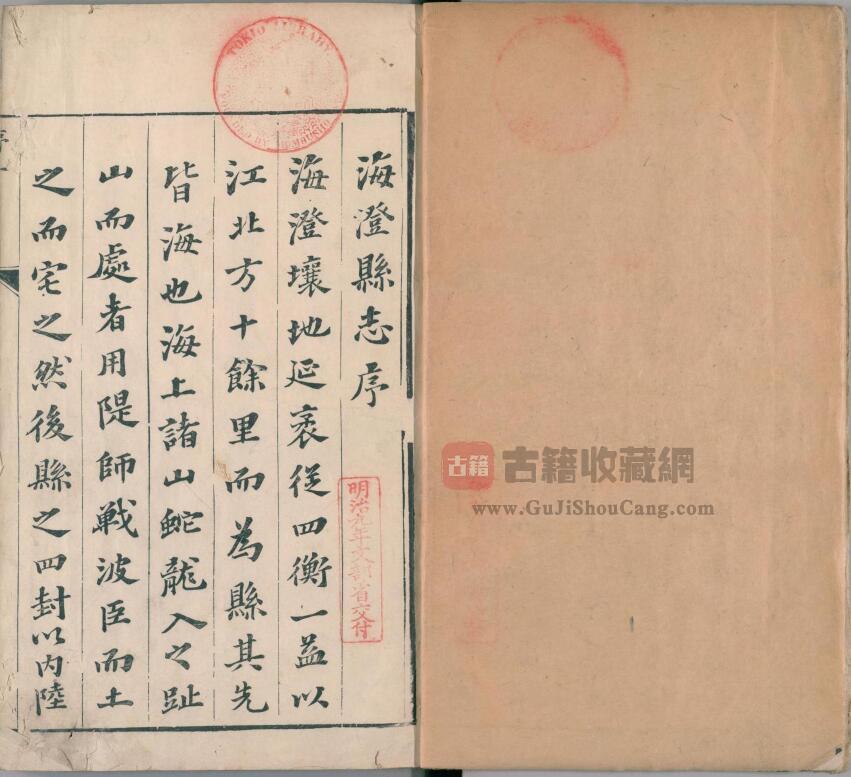 海澄縣志序
海澄壤地延袤從四衡一益以
江北方十餘里而為縣其先
皆海也海上諸山蛇龍入之趾
山而處者用隄師戰波臣而土
之而宅之然後縣之四封以內陸
明治九年文部省交付
TOKIO LIBRARY
古籍
古籍收藏網
www.GuJiShouCang.com